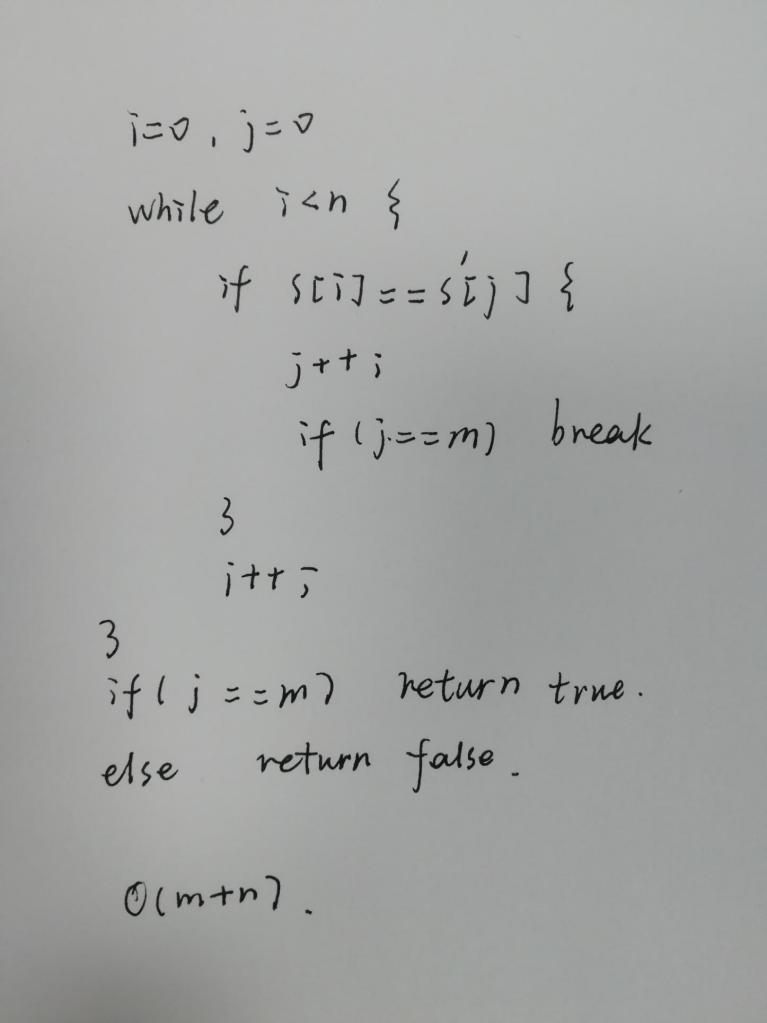 i=0, j=0
while i<n {
if s[i]==s'[j] {
j++;
if (j==m) break
}
i++;
}
if(j==m) return true.
else return false.
O(m+n).